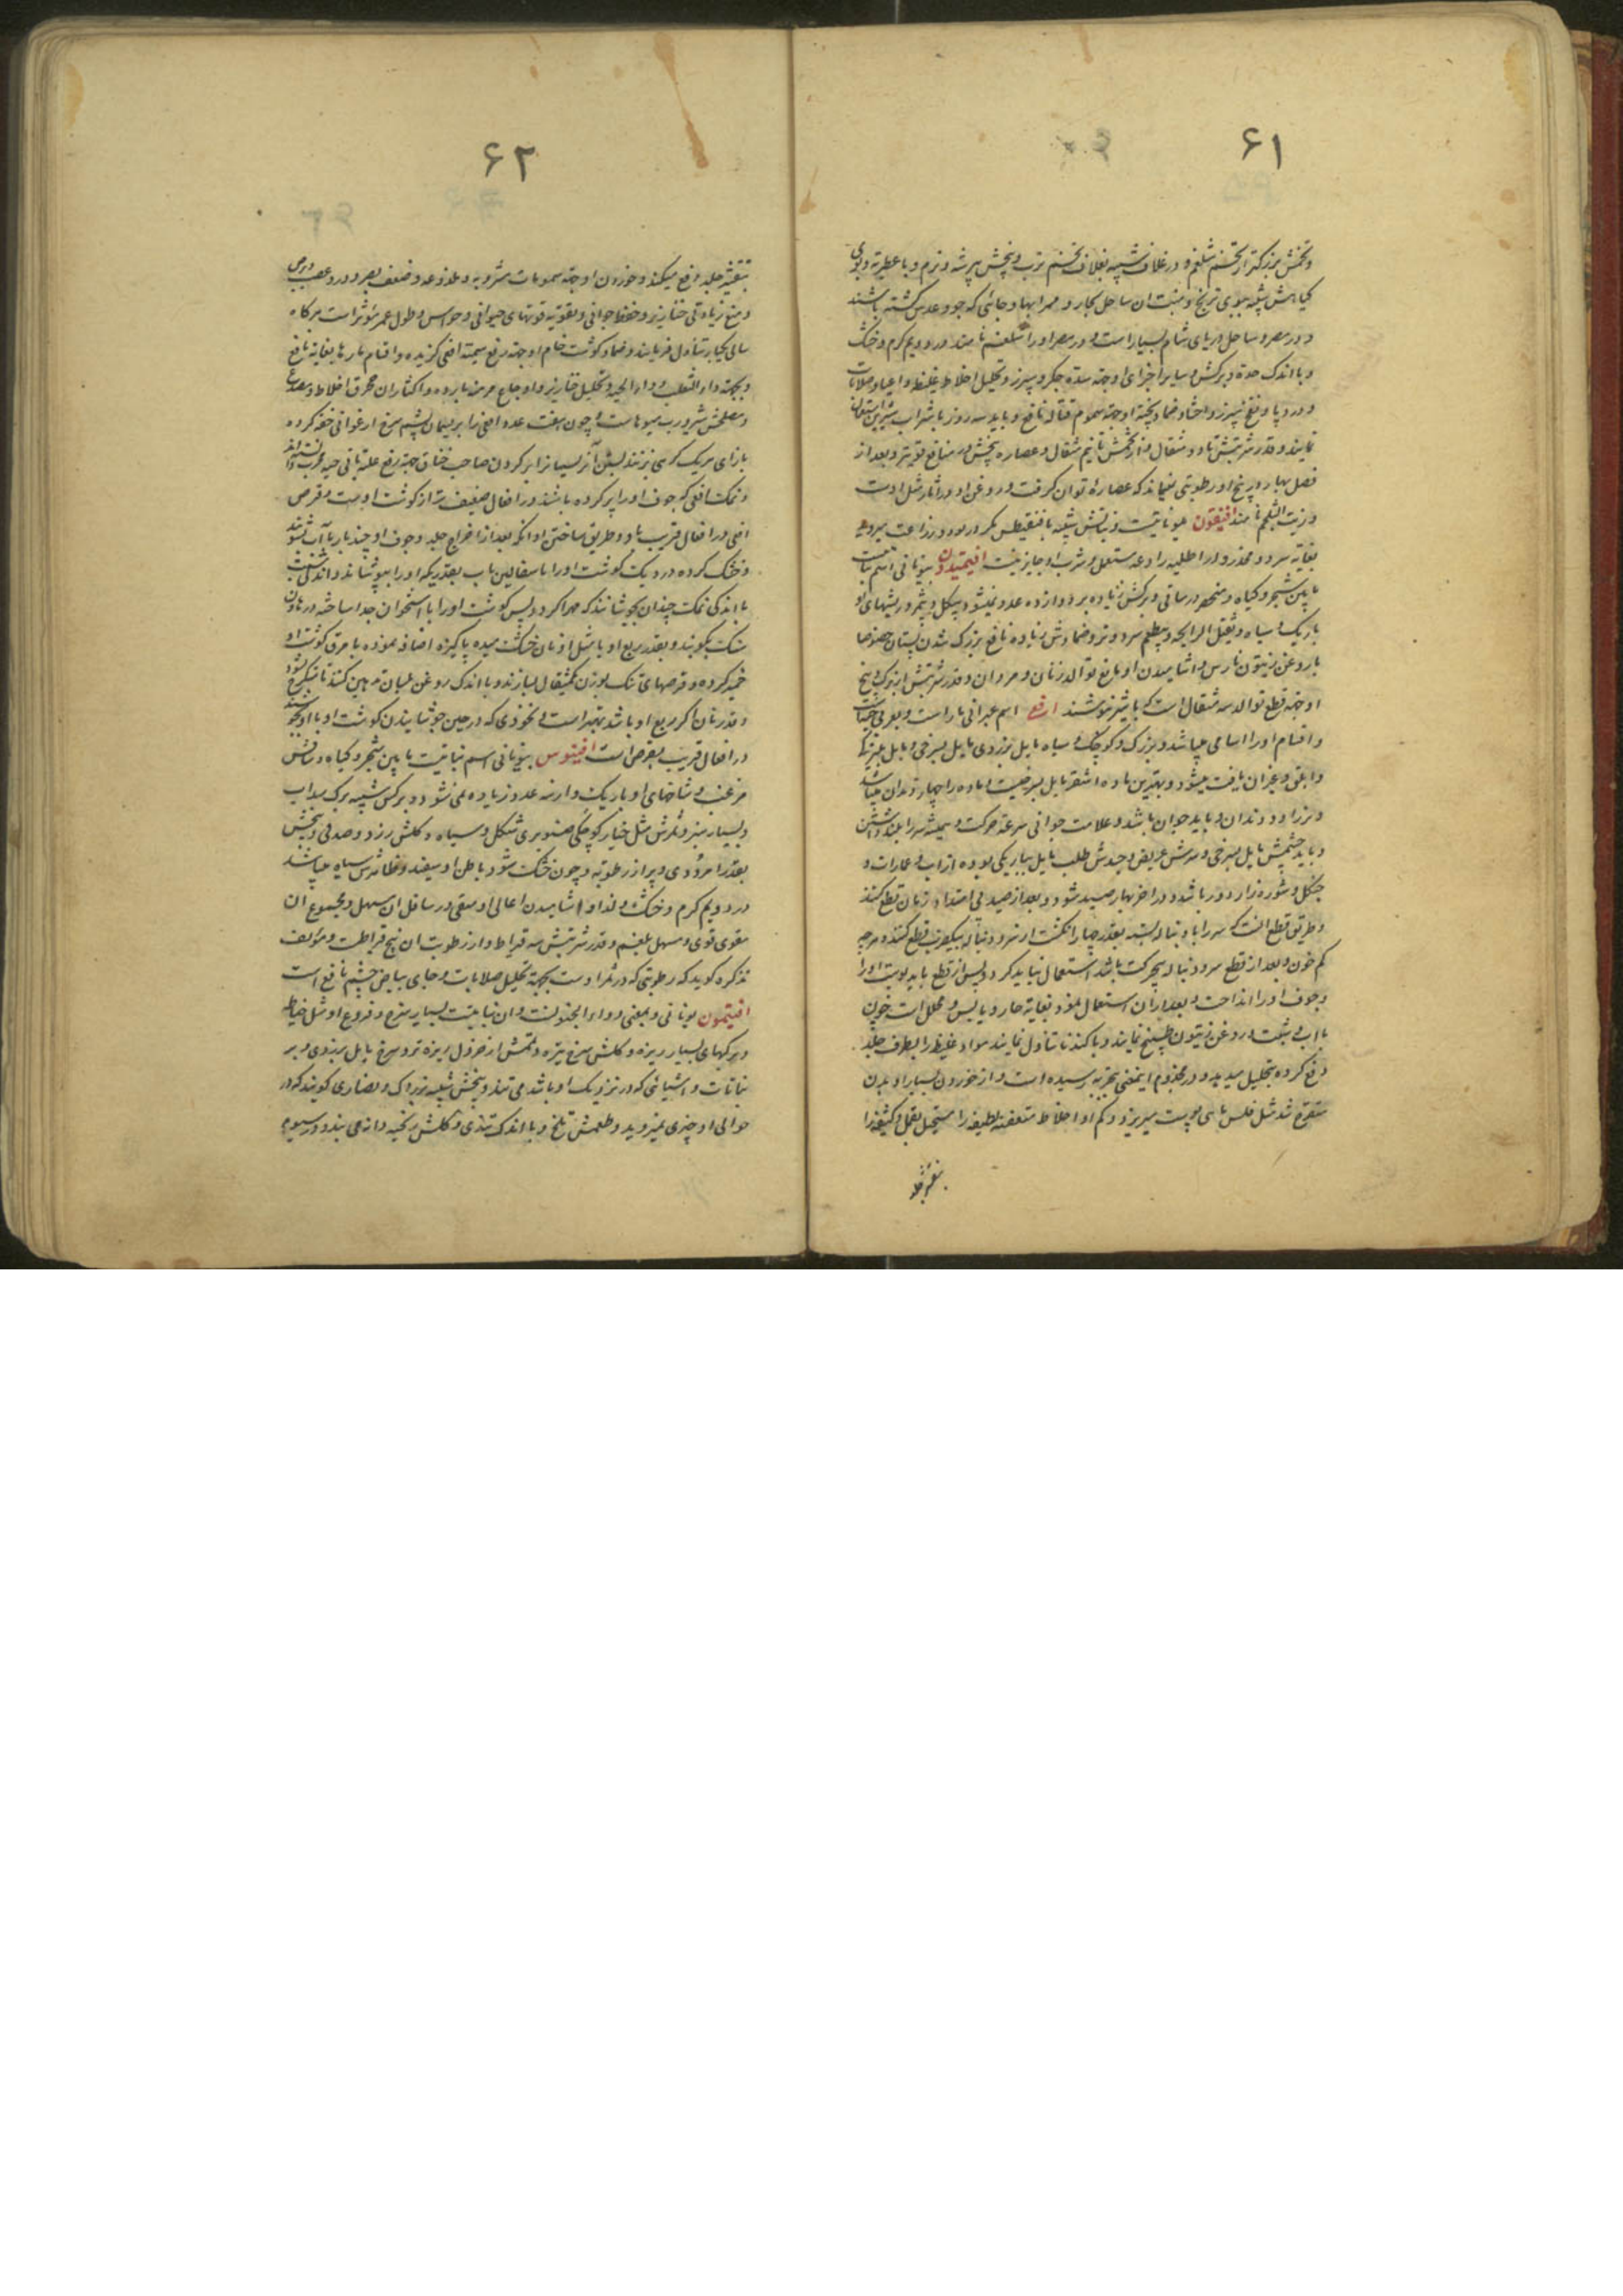 ۶۱
وتخمش بزرکتر از تخم شلغم و در غلاف شبیه بغلاف تخم ترب و بیخش پر شه و نرم و با عطریه و بوی
کیاهش شبیه ببوی ترنج و منبت ان ساحل بحار و ممر ابها و جائی که جو و عدس کشته باشند
و در مصر و ساحل دریای شام بسیار است و در مصر او را شلغم نامند در دویم کرم و خشک
و با اندک حدة و برکش و سایر اجزای او جهة سده جکر و سپرز و تحلیل اخلاط غلیظ و اعیا و صلابات
و درد پا و نفخ سپرز و احشا و ضماد پخته او جهة سموم قتاله نافع و باید سه روز با شراب
نمایند و قدر شربتش تا دو مثقال و از تخمش تا نیم مثقال و عصاره بیخش در منافع قویتر و بعد از
فصل بهار در بیخ او رطوبتی نمیماند که عصاره توان کرفت و روغن او در اثار مثل اوست
و زیت الشلجم نامند افیقون یونانیست و نباتش شبیه باقنقیطس مکر در مورد و زراعت میروید
بغایه سرد و مخدر و در اطلیه رادعه مستعمل و شرب او جایز نیست افیمیدون یونانی اسم نباتیست
ما بین شجر و کیاه و منحصر در ساقی و برکش زیاده بر دوازده عدد نمیشود و بیکل و بیثمر و ریشهای او
باریک و سیاه و ثقیل الرایحه و بیطعم سرد و تر و ضمادش زیاده نافع بزرک شدن پستان خصوصا
با روغن زیتون نارس و اشامیدن او مانع توالد زنان و مردان و قدر شربتش از برک و بیخ
او جهة قطع توالد سه مثقال است که با شیر بنوشند افعی اسم عبرانی مار است و بعربی حیات
و اقسام او را اسامی میباشد و بزرک و کوچک و سیاه مایل بزردی مایل بسرخی و مایل بتیرکی
و ابلق و غیر ان یافت میشود و بهترین ماده اشقر مایل بسرخیست و ماده را چهار دندان میباشد
و نر را دو دندان و باید جوان باشد و علامت جوانی سرعة حرکت و همیشه سر را بلند داشتن
و باید چشمش مایل بسرخی و سرش عریض و جسدش صلب مایل بباریکی بوده از اب و عمارات و
جنکل و شوره زار دور باشد و در اخر بهار صید شود و بعد از صید بی امتداد زمان قطع کنند
و طریق قطع انست که سر را با دنباله بسته بقدر چهار انکشت از سر و دنباله بیکضرب قطع کنند و هرچه
کم خون و بعد از قطع سر و دنباله بیحرکت باشد استعمال نباید کرد و پس از قطع باید پوست او را
و جوف او را انداخت و بعد از ان استعمال نمود بغایة حار و یابس و محلل است چون
با اب و شبت و روغن زیتون طبیخ نمایند و با کندنا تناول نمایند مواد غلیظ را بطرف جلد
دفع کرده بتحلیل میدهد و در مجذوم اینمعنی بتجربه رسیده است و از خوردن بسیار او بدن
متقرح شد مثل فلس ماهی پوست میریزد و کم او اخلاط متعفنه لطیفه را مستحیل بقمل و کثیفه را
بتقشیر جلد
۶۲
بتقشیر جلد دفع میکند و خوردن او جهة سمومات مشروبه و ملذوعه و ضعف بصر و درد عصب
و منع زیادتی خنازیر و حفظ جوانی و تقویه قوتهای حیوانی و حواس و طول عمر مؤثر است هرکاه
سالی یکبار تناول فرمایند و ضماد کوشت خام او جهة رفع سمیة افعی کزیده و اقسام مارها بغایه نافع
و بجهة داء الثعلب و داء الحیه و تحلیل خنازیر و اوجاع مزمنه بارده و اکثار ان محرق اخلاط و مصدع
و مصلحش شیر و رب میوهاست و چون هفت عدد افعی را بریسمان پشم سرخ ارغوانی خفه کرده
بازای هر یک کرهی بزنند بستن آن ریسمان را بر کردن صاحب خناق جهة رفع علة باقی حیه مجرب دانسته‌اند
و نمک افعی که جوف او را پر کرده باشند در افعال ضعیف تر از کوشت اوست و قرص
افعی در افعال قریب باو و طریق ساختن او انکه بعد از اخراج جلد و جوف او چند بار با آب بشویند
و خشک کرده در دیک کوشت او را با سفالین باب بقدریکه او را بپوشاند و اندکی شبت
با اندکی نمک چندان بجوشانند که مهرا کردد پس کوشت او را با استخوان جدا ساخته در هاون
سنک بکوبند و بقدر ربع او یا مثل او نان خشک میده پاکیزه اضافه نموده با مرق کوشت او
خمیر کرده و قرصهای تنک بوزن یکمثقال بسازند و با اندک روغن بلسان تدهین کنند تا
و قدر نان اکر ربع او باشد بهتر است و نخودی که در حین جوشانیدن کوشت او با او بجوشند
در افعال قریب بقرص است افیوس یونانی اسم نباتیست مابین شجر و کیاه و ساقش
مزغب و شاخهای او باریک و از سه عدد زیاده نمی‌شود و برکش شبیه ببرک سداب
و بسیار سبز و ثمرش مثل خیار کوچکی صنوبری شکل و سیاه و کلش زرد و صدفی و بیخش
بقدر امرودی و پر از رطوبه و چون خشک شود باطن او سفید و ظاهرش سیاه میباشد
در دویم کرم و خشک و لذاع و اشامیدن اعالی او مقی و سافل ان مسهل و مجموع ان
مقوی قوی و مسهل بلغم و قدر شربتش سه قیراط و از رطوبت ان نیج قیراطست و مؤلف
تذکره کوید که رطوبتی که در ثمر اوست بجهة تحلیل صلابات و جای بیاض چشم نافع است
افیتمون یونانی و بمعنی دواء الجنونست و ان نباتیست بسیار سرخ و فروع او مثل خیاطه
و برکهای بسیار ریزه و کلش سرخ تیره و تخمش از خردل ریزه تر و سرخ مایل بزردی و بر
نباتات و اشیائی که در نزدیک او باشد می‌تند و بیخش شبیه بزردک و نصاری کویند که در
حوالی او چیزی نمیروید و طعمش تلخ و با اندک تندی و کلش ریخته دانه می‌بندد در سیوم